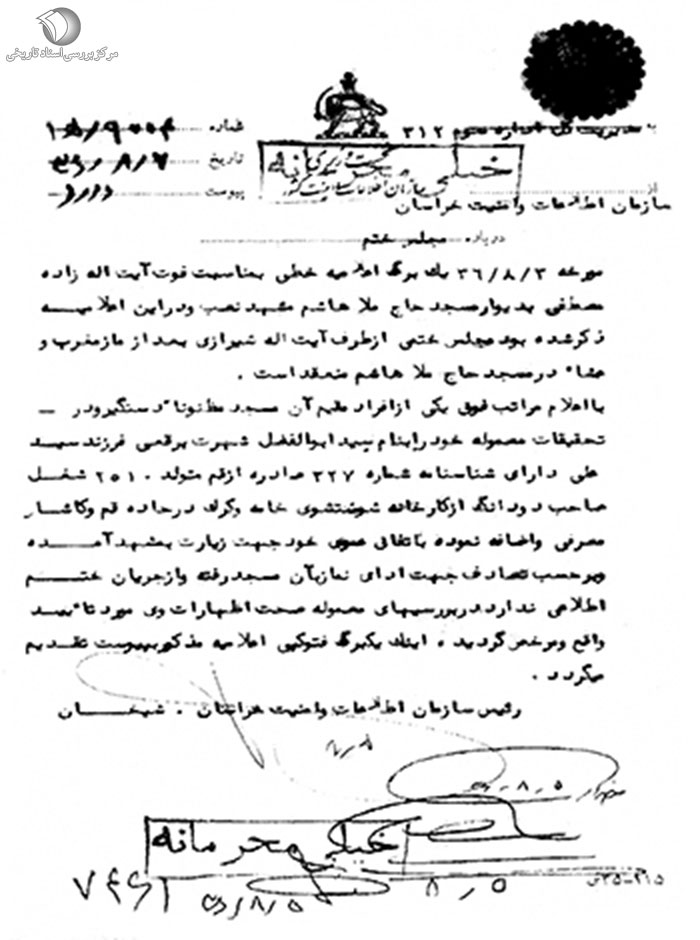 مرکز بررسی اسناد تاریخی
به مدیریت کل اداره سوم ۳۱۲
شماره
تاریخ
پیوست دارد
خیلی محرمانه
نخست وزیری
سازمان اطلاعات و امنیت کشور
از
سازمان اطلاعات و امنیت خراسان
درباره مجلس ختم
مورخه ۳۶/۸/۳ یک برگ اعلامیه خطی بمناسبت فوت آیت اله زاده
مصطفی بدیوار مسجد حاج ملا هاشم مشهد نصب و در این اعلامیه
ذکر شده بود مجلس ختمی از طرف آیت اله شیرازی بعد از نماز مغرب و
عشاء در مسجد حاج ملا هاشم منعقد است .
با اعلام مراتب فوق یکی از افراد مقیم آن مسجد مظنونا" دستگیر و در –
تحقیقات معموله خود را بنام سید ابوالفضل شهرت برقعی فرزند سید
علی دارای شناسنامه شماره ۳۲۷ صادره از قم متولد ۲۵۱۰ شغل
صاحب دودانگ از کارخانه شستشوی خامه وکرک در جاده قم و کاشان
معرفی و اضافه نموده باتفاق عموی خود جهت زیارت بمشهد آمده
و بر حسب تصادف جهت ادای نماز بآن مسجد رفته و از جریان ختم
اطلاعی ندارد در بررسیهای معموله صحت اظهارات وی مورد تائید
واقع و مرخص گردید . اینک یکبرگ فتوکپی اعلامیه مذکور بپیوست تقدیم
میگردد .
رئیس سازمان اطلاعات و امنیت خراسان . شیخان
۵ ر ۸ ر
خیلی محرمانه
۵ ر ۸
۵ ر ۸ ر ۳۶